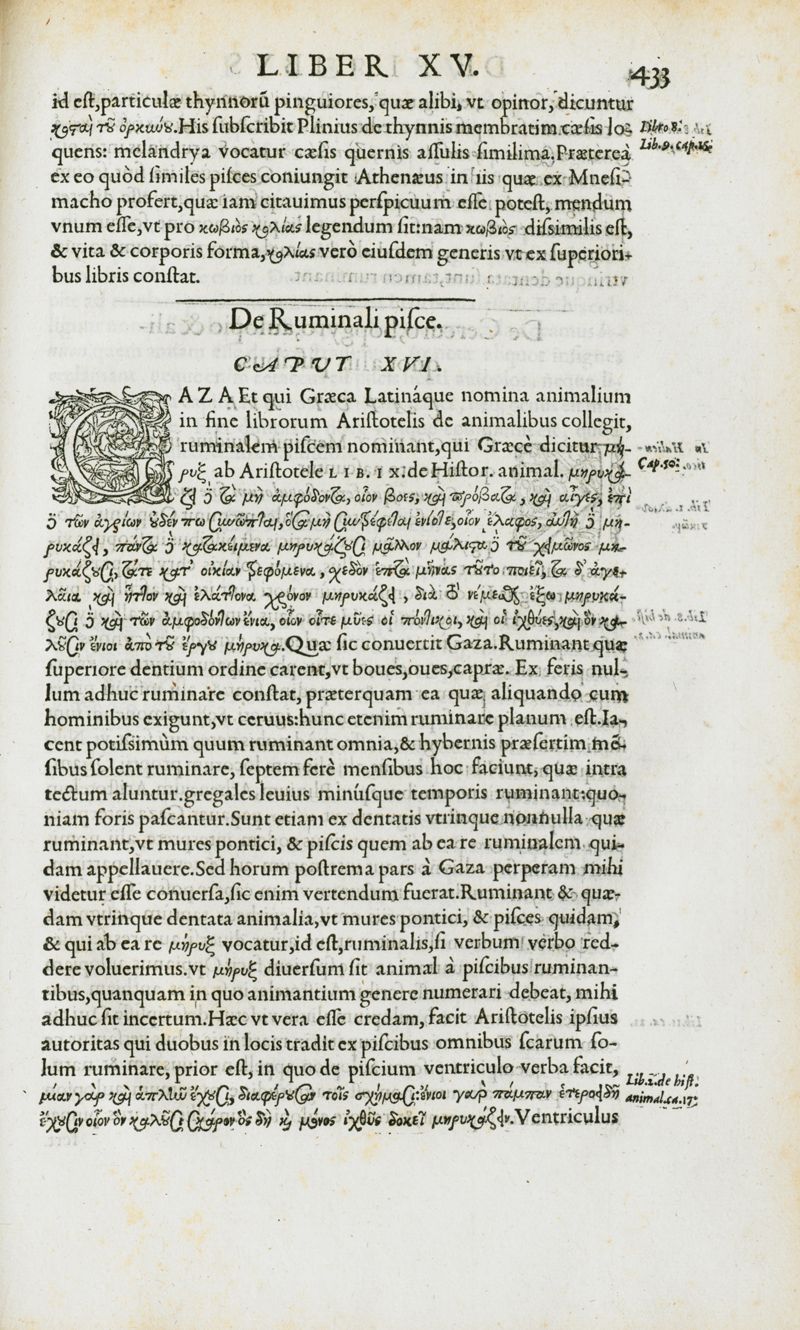 LIBER XV. 433
id est, particulæ thynnorũ pinguiores, quæ alibi, vt opinor, dicuntur
καὶ τοῦ ὀρκύνου. His subscribit Plinius de thynnis membratim cæsis lo- Libro 8.
quens: melandrya vocatur cæsis quernis assulis similima, Præterea Lib. 9. cap. 15.
ex eo quòd similes pisces coniungit Athenæus in iis quæ ex Mnesi-
macho profert, quæ iam citauimus perspicuum esse potest, mendum
vnum esse, vt pro κωβιὸς κολίας legendum sit: nam κωβιὸς dissimilis est,
& vita & corporis forma, κολίας verò eiusdem generis vt ex superiori-
bus libris constat.
De Ruminali pisce.
CAPUT XVI.
GAZA Et qui Græca Latináque nomina animalium
in fine librorum Aristotelis de animalibus collegit,
ruminalem piscem nominant, qui Græcè dicitur μή-
ρυξ ab Aristotele LIB. IX. de Histor. animal. μηρυκά- Cap. 50.
ζει δὲ τὰ μὴ ἀμφόδοντα, οἷον βόες, καὶ πρόβατα, καὶ αἶγες, ἐπὶ
δὲ τῶν ἀγρίων οὐδέν πω συνῶπται, ὅσα μὴ συντρέφεται ἐνίοτε, οἷον ἔλαφος, αὕτη δὲ μη-
ρυκάζει, πάντα δὲ κατακείμενα μηρυκάζουσι μᾶλλον μάλιστα δὲ τοῦ χειμῶνος μη-
ρυκάζουσι, τά τε κατ' οἰκίαν τρεφόμενα, σχεδὸν ἑπτὰ μῆνας τοῦτο ποιεῖ, τὰ δ' ἀγε-
λαῖα καὶ ἧττον καὶ ἐλάττονα χρόνον μηρυκάζει, διὰ τὸ νέμεσθαι ἔξω μηρυκά-
ζουσι δὲ καὶ τῶν ἀμφοδόντων ἔνια, οἷον οἵτε μῦες οἱ ποντικοί, καὶ οἱ ἰχθύες, καὶ ὃν κα-
λοῦσιν ἔνιοι ἀπὸ τοῦ ἔργου μήρυκα. Quæ sic conuertit Gaza. Ruminant quæ
superiore dentium ordine carent, vt boues, oues, capræ. Ex feris nul-
lum adhuc ruminare constat, præterquam ea quæ aliquando cum
hominibus exigunt, vt ceruus: hunc etenim ruminare planum est. Ia-
cent potissimùm quum ruminant omnia, & hybernis præsertim mẽ-
sibus solent ruminare, septem ferè mensibus hoc faciunt, quæ intra
tectum aluntur. gregales leuius minúsque temporis ruminant: quo-
niam foris pascantur. Sunt etiam ex dentatis vtrinque nonnulla quæ
ruminant, vt mures pontici, & piscis quem ab ea re ruminalem qui-
dam appellauere. Sed horum postrema pars à Gaza perperam mihi
videtur esse conuersa, sic enim vertendum fuerat. Ruminant & quæ-
dam vtrinque dentata animalia, vt mures pontici, & pisces quidam,
& qui ab ea re μήρυξ vocatur, id est, ruminalis, si verbum verbo red-
dere voluerimus. vt μήρυξ diuersum sit animal à piscibus ruminan-
tibus, quanquam in quo animantium genere numerari debeat, mihi
adhuc sit incertum. Hæc vt vera esse credam, facit Aristotelis ipsius
autoritas qui duobus in locis tradit ex piscibus omnibus scarum so-
lum ruminare, prior est, in quo de piscium ventriculo verba facit, Lib. 2. de hist.
μίαν γὰρ καὶ ἁπλῶ ἔχουσι, διαφέρουσαν τοῖς σχήμασι: ἔνιοι γὰρ πάμπαν ἑτεροειδῆ animal. ca. 17.
ἔχουσιν οἷον ὃν καλοῦσι σκάρον ὃς δὴ καὶ μόνος ἰχθῦς δοκεῖ μηρυκάζειν. Ventriculus